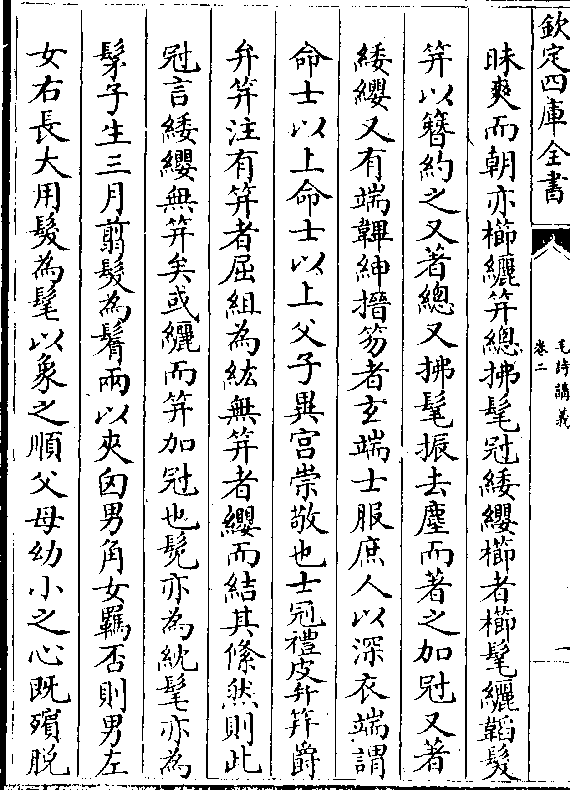 欽定四庫全書
毛詩講義
卷二
一
昧爽而朝亦櫛纚笄總拂髦冠緌纓櫛者櫛髦纚韜髮
笄以簪約之又著總又拂髦振去塵而著之加冠又著
緌纓又有端韠紳搢笏者玄端士服庶人以深衣端謂
命士以上命士以上父子異宮崇敬也士冠禮皮弁笄爵
弁笄注有笄者屈組為紘無笄者纓而結其絛然則此
冠言緌纓無笄矣或纚而笄加冠也髧亦為紞髦亦為
髳子生三月翦髮為鬌兩以夾囟男角女羈否則男左
女右長大用髮為髦以象之順父母幼小之心既殯脫